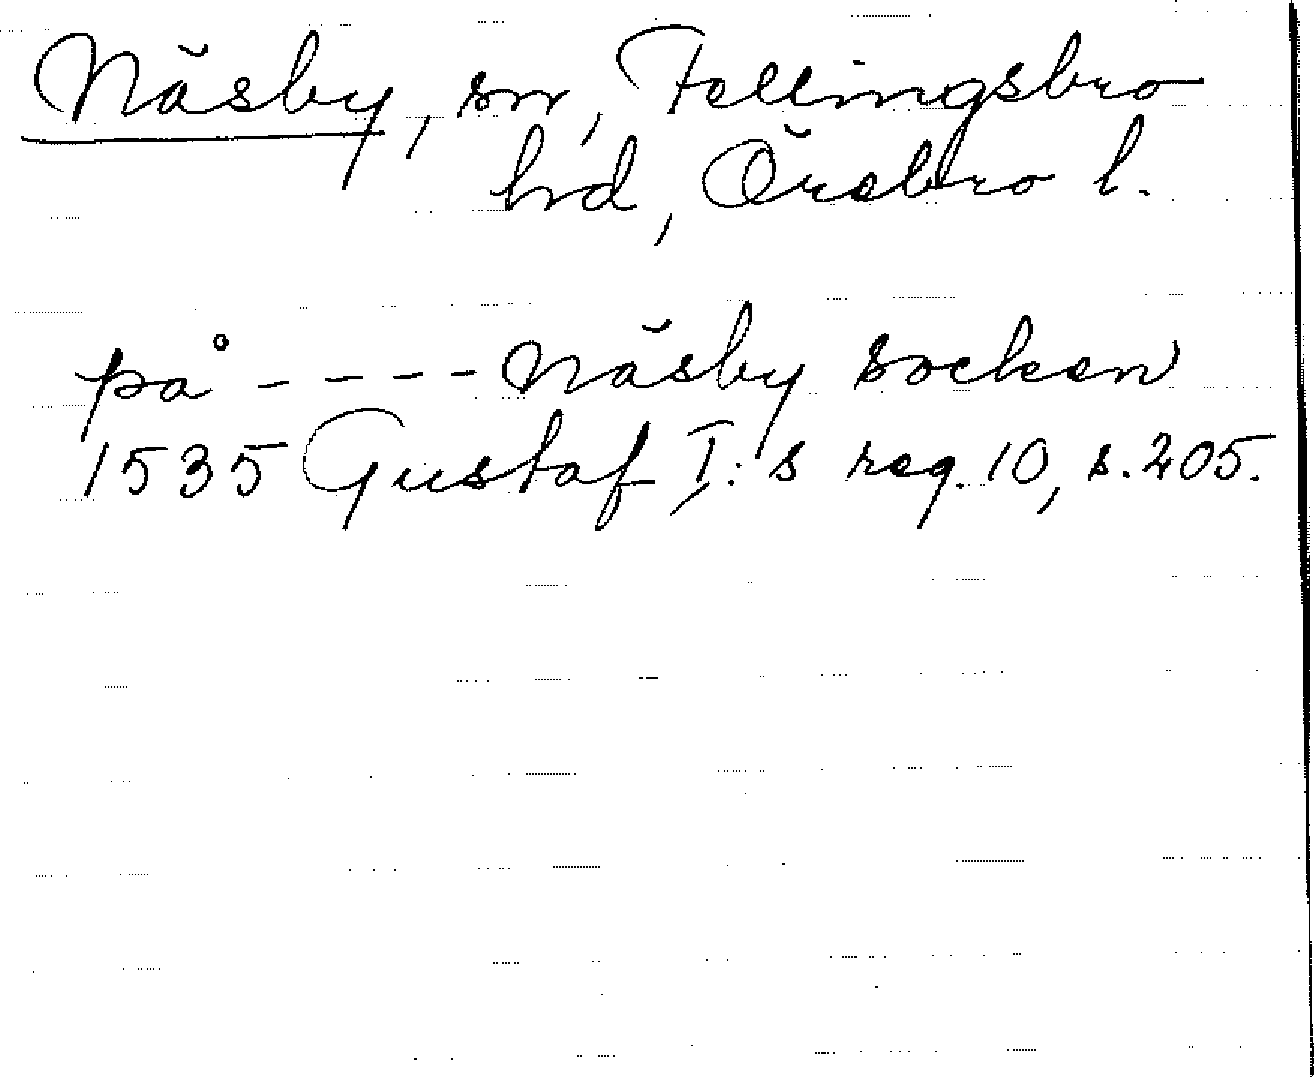 Näsby, sn, Fellingsbro
hd, Örebro l.
på - - - - Näsby socken
1535 Gustaf I:s reg. 10, s. 205.